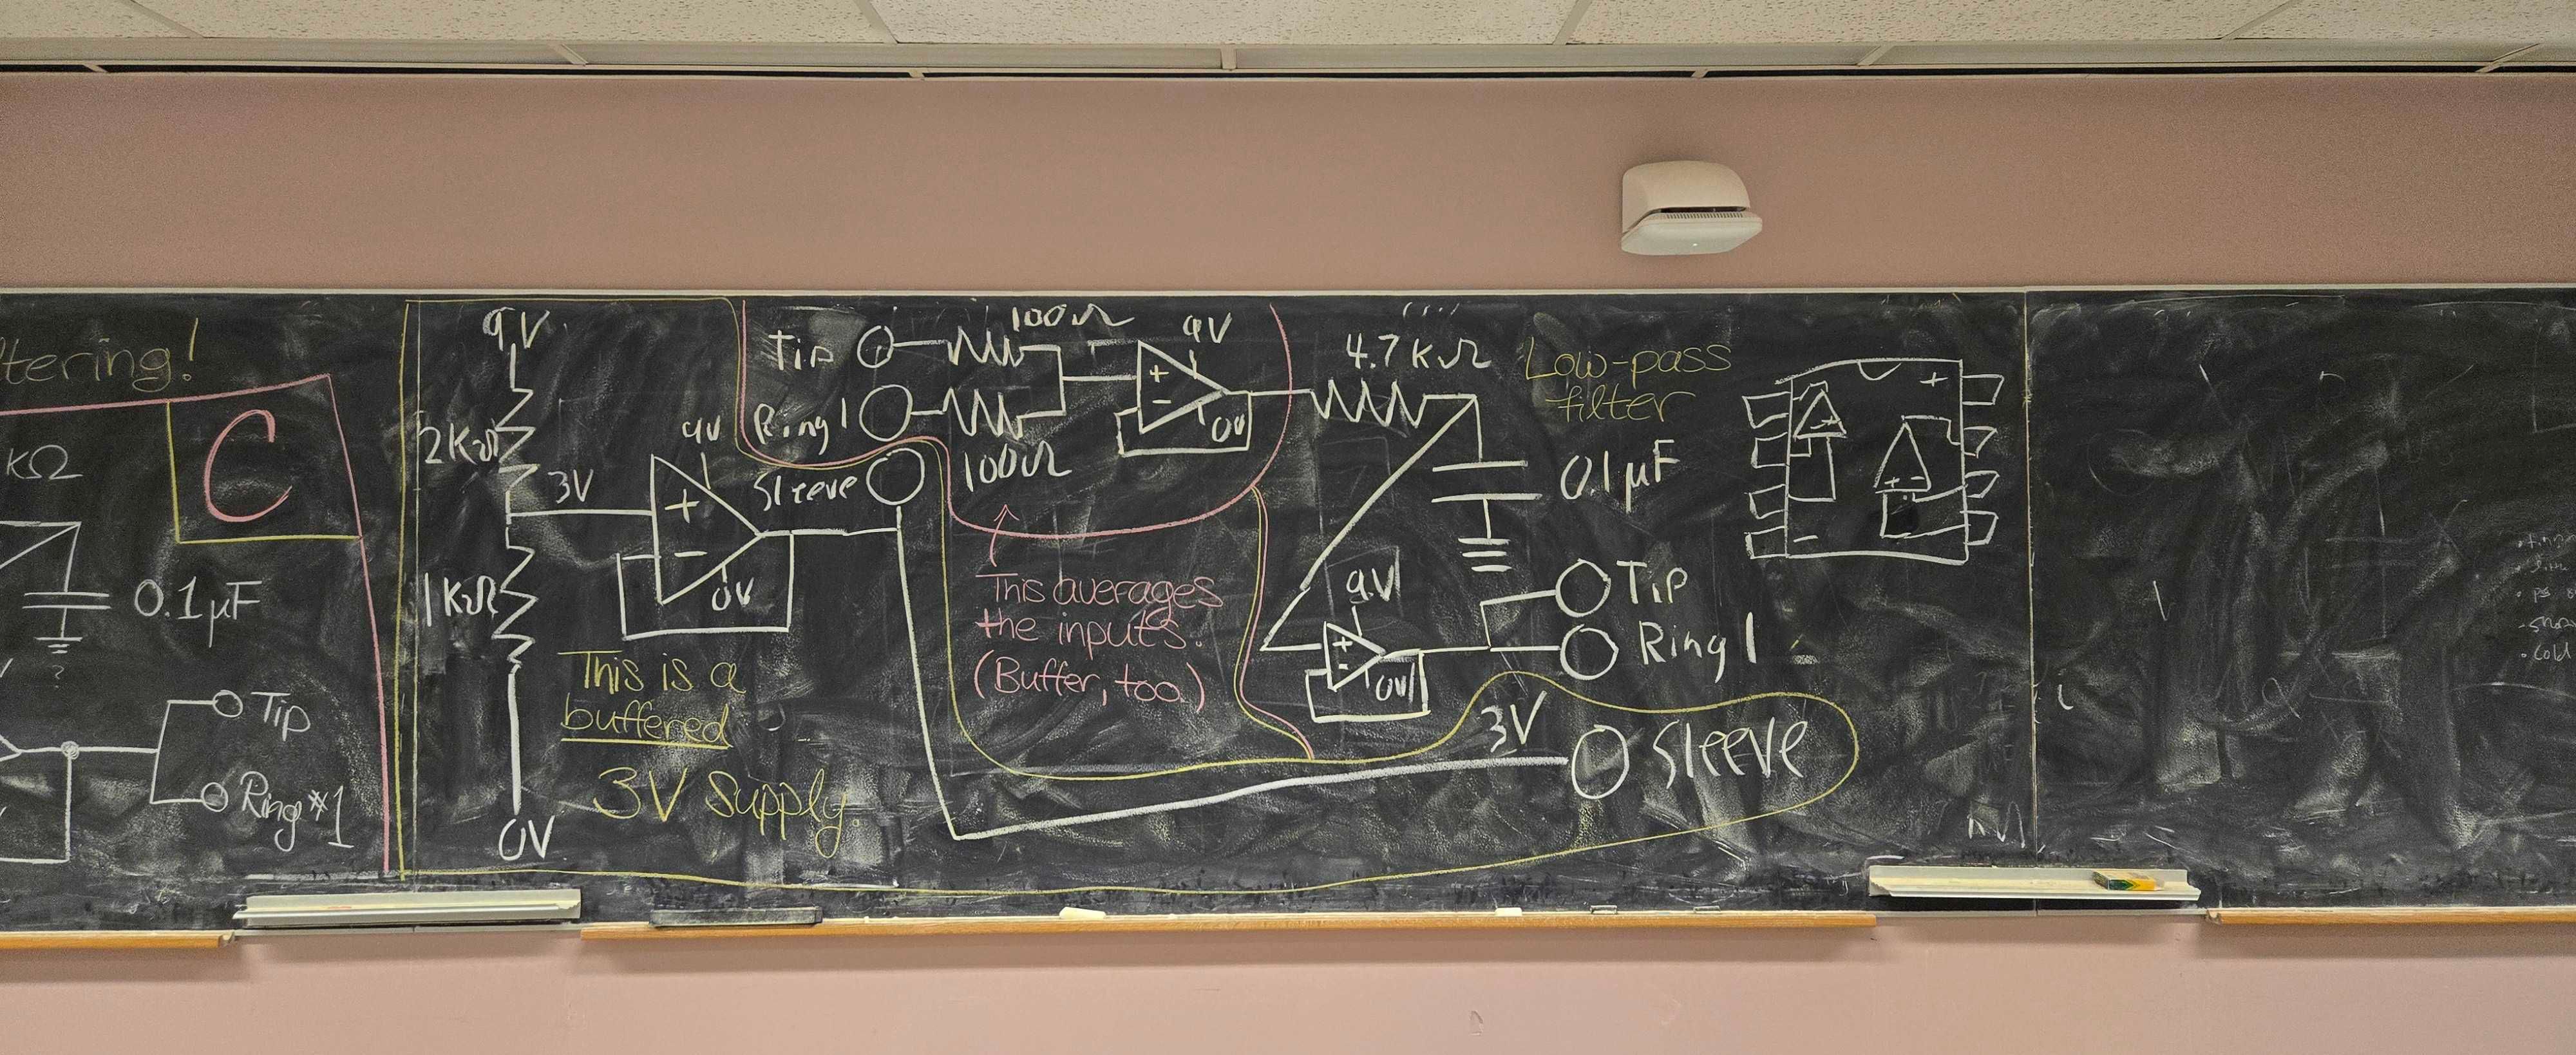 ltering!
C
kΩ
0.1μF
?
Tip
Ring #1
9V
2KΩ
3V
1KΩ
0V
9V
+
-
0V
This is a
buffered
3V Supply.
Tip
Ring 1
Sleeve
100Ω
100Ω
9V
+
-
0V
This averages
the inputs.
(Buffer, too.)
4.7kΩ
Low-pass
filter
0.1μF
9V
+
-
0V
Tip
Ring 1
3V
Sleeve
+
-
- +
+ -